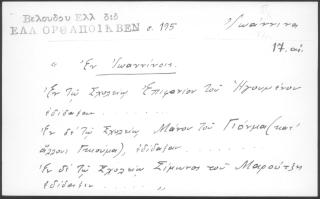 Βελούδου Ελλ διδ
ΕΛΛ ΟΡΘ ΑΠΟΙΚ ΒΕΝ σ. 195
Ἰωάννινα
17. αἰ.
" Ἐν Ἰωαννίνοις.
Ἐν τῷ Σχολείῳ Ἐπιφανίου τοῦ Ἡγουμένου
ἐδίδαξαν . . . . . . . . .
Ἐν δὲ τῷ Σχολείῳ Μάνου τοῦ Γιόνμα (κατ'
ἄλλους Γκιούμα), ἐδίδαξαν . . . . . .
Ἐν δὲ τῷ Σχολείῳ Σίμωνος τοῦ Μαρούτζη
ἐδίδαξαν . . . . . . . . . "